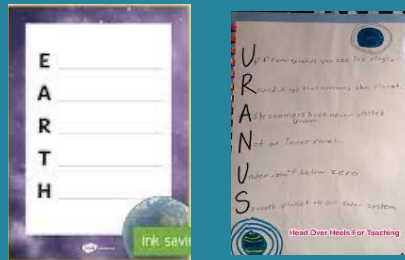 E
A
R
T
H
Ink savi
Up From uranus you see Icy rings.
Round, Rings that surround the planet.
Astronomers have never visited Uranus.
Not an Inner planet.
Under below zero
Seventh planet in our solar system
Head Over Heels For Teaching